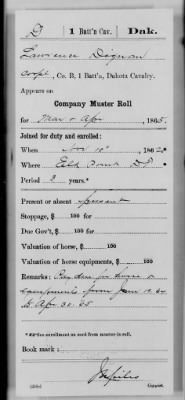 D | 1 Batt'n Cav. | Dak.
Lawrence Dignan
Corpl, Co. B, 1 Batt'n, Dakota Cavalry.
Appears on
Company Muster Roll
for Mar & Apr, 1865.
Joined for duty and enrolled:
When 10, 1862*
Where Elk Point D.T.
Period 3 years.*
Present or absent Present
Stoppage, $ 100 for
Due Gov't, $ 100 for
Valuation of horse, $ 100
Valuation of horse equipments, $ 100
Remarks: Pay due for horse &
equipments from
to Apr 30, 65
*See enrollment on card from muster-in roll.
Book mark:
Copyist.